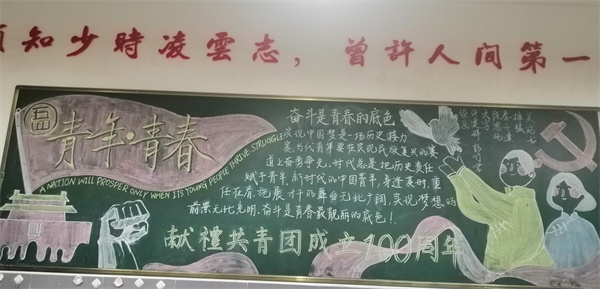 须知少時凌雲志，曾許人间第一
五四
青年·青春
A NATION WILL PROSPER ONLY WHEN ITS YOUNG PEOPLE THRIVE STRUGGLE
奋斗是青春的底色
实现中国梦是一场历史接力
赛，当代青年要在实现民族复兴的赛
道上奋勇争先。时代总是把历史责任
赋予青年。新时代的中国青年，身逢其时，重
任在肩，施展才干的舞台无比广阔，实现梦想的
前景无比光明。奋斗是青春最靓丽的底色！
献禮共青团成立100周年